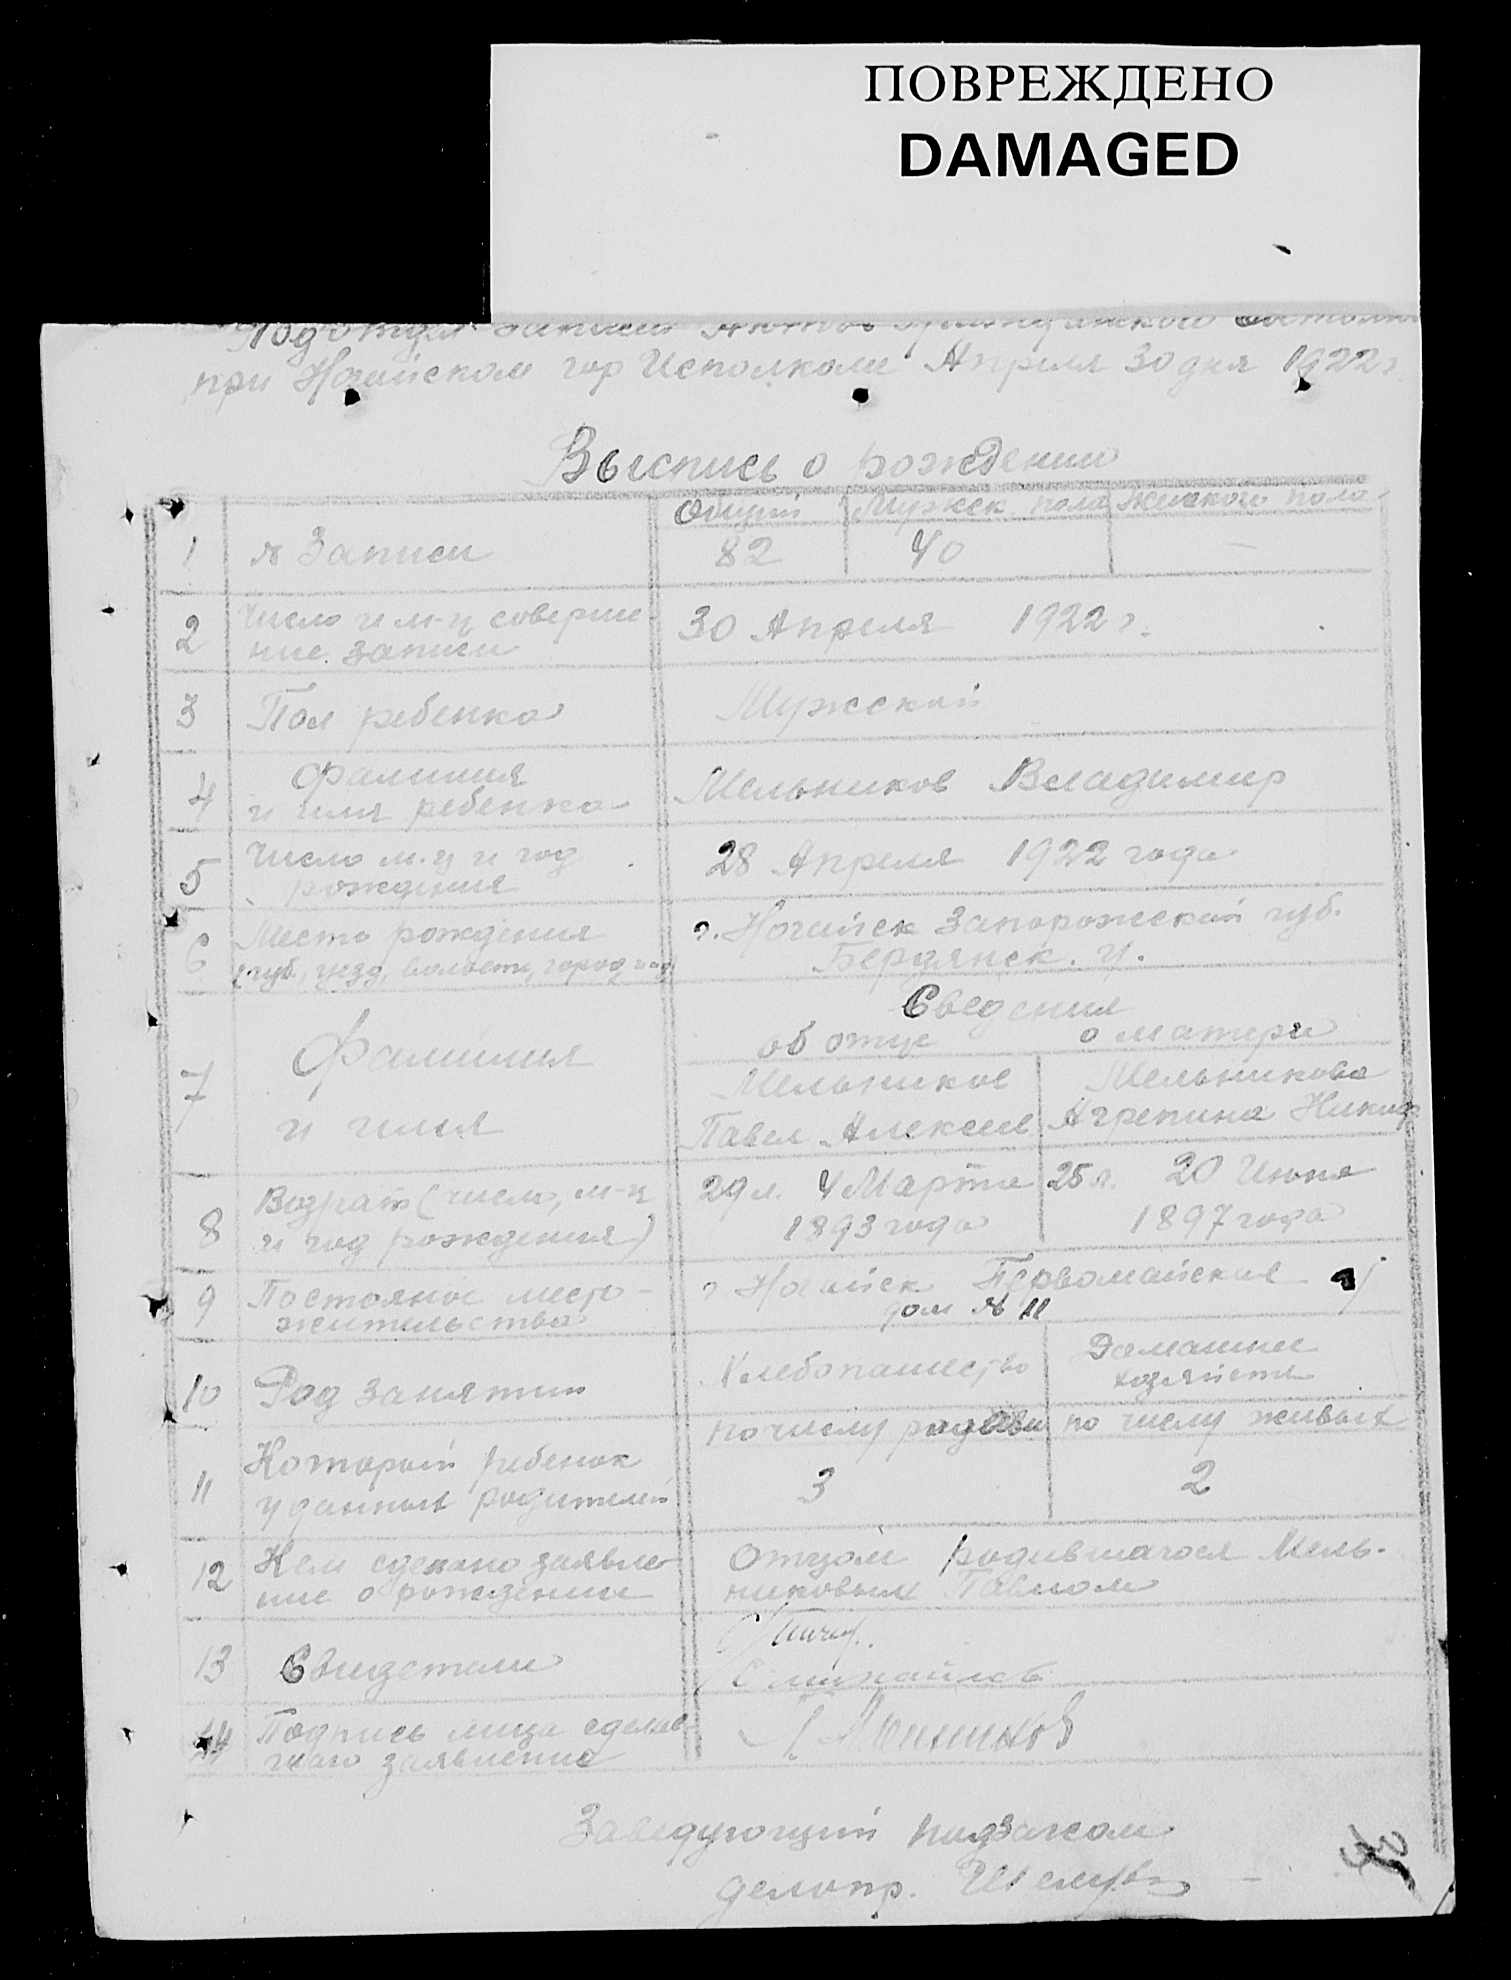 ПОВРЕЖДЕНО
DAMAGED
Подотдел Записи Актов Гражданского Состояния
при Ногайском гор Исполкоме Апреля 30 дня 1922 г.
Выпись о рождении
Общий Мужск. пола Женского пола
1 № Записи 82 40 —
2 Число и м-ц соверше-
ние записи
30 Апреля 1922 г.
3 Пол ребенка Мужской
4 Фамилия
и имя ребенка
Мельников Владимир
5 Число м-ц и год
рождения
28 Апреля 1922 года
6 Место рождения
(губ., уезд, волость, город и др)
г. Ногайск Запорожской губ.
Бердянск. у.
Сведения
об отце о матери
7 Фамилия
и имя
Мельников
Павел Алексеев
Мельникова
Агрепина Никиф
8 Возраст (число, м-ц
и год рождения)
29 л. 4 Марта
1893 года
25 л. 20 Июня
1897 года
9 Постоянное место-
жительство
г Ногайск Первомайская у
дом № 11
10 Род занятий Хлебопашество
Домашнее
хозяйство
11 Который ребенок
у данных родителей
по числу родов
3
по числу живых
2
12 Кем сделано заявле-
ние о рождении
Отцом родившагося Мель-
никовым Павлом
13 Свидетели
Михайлов
14 Подпись лица сделав-
шаго заявление
П Мельников
Заведующий подзагсом
делопр.